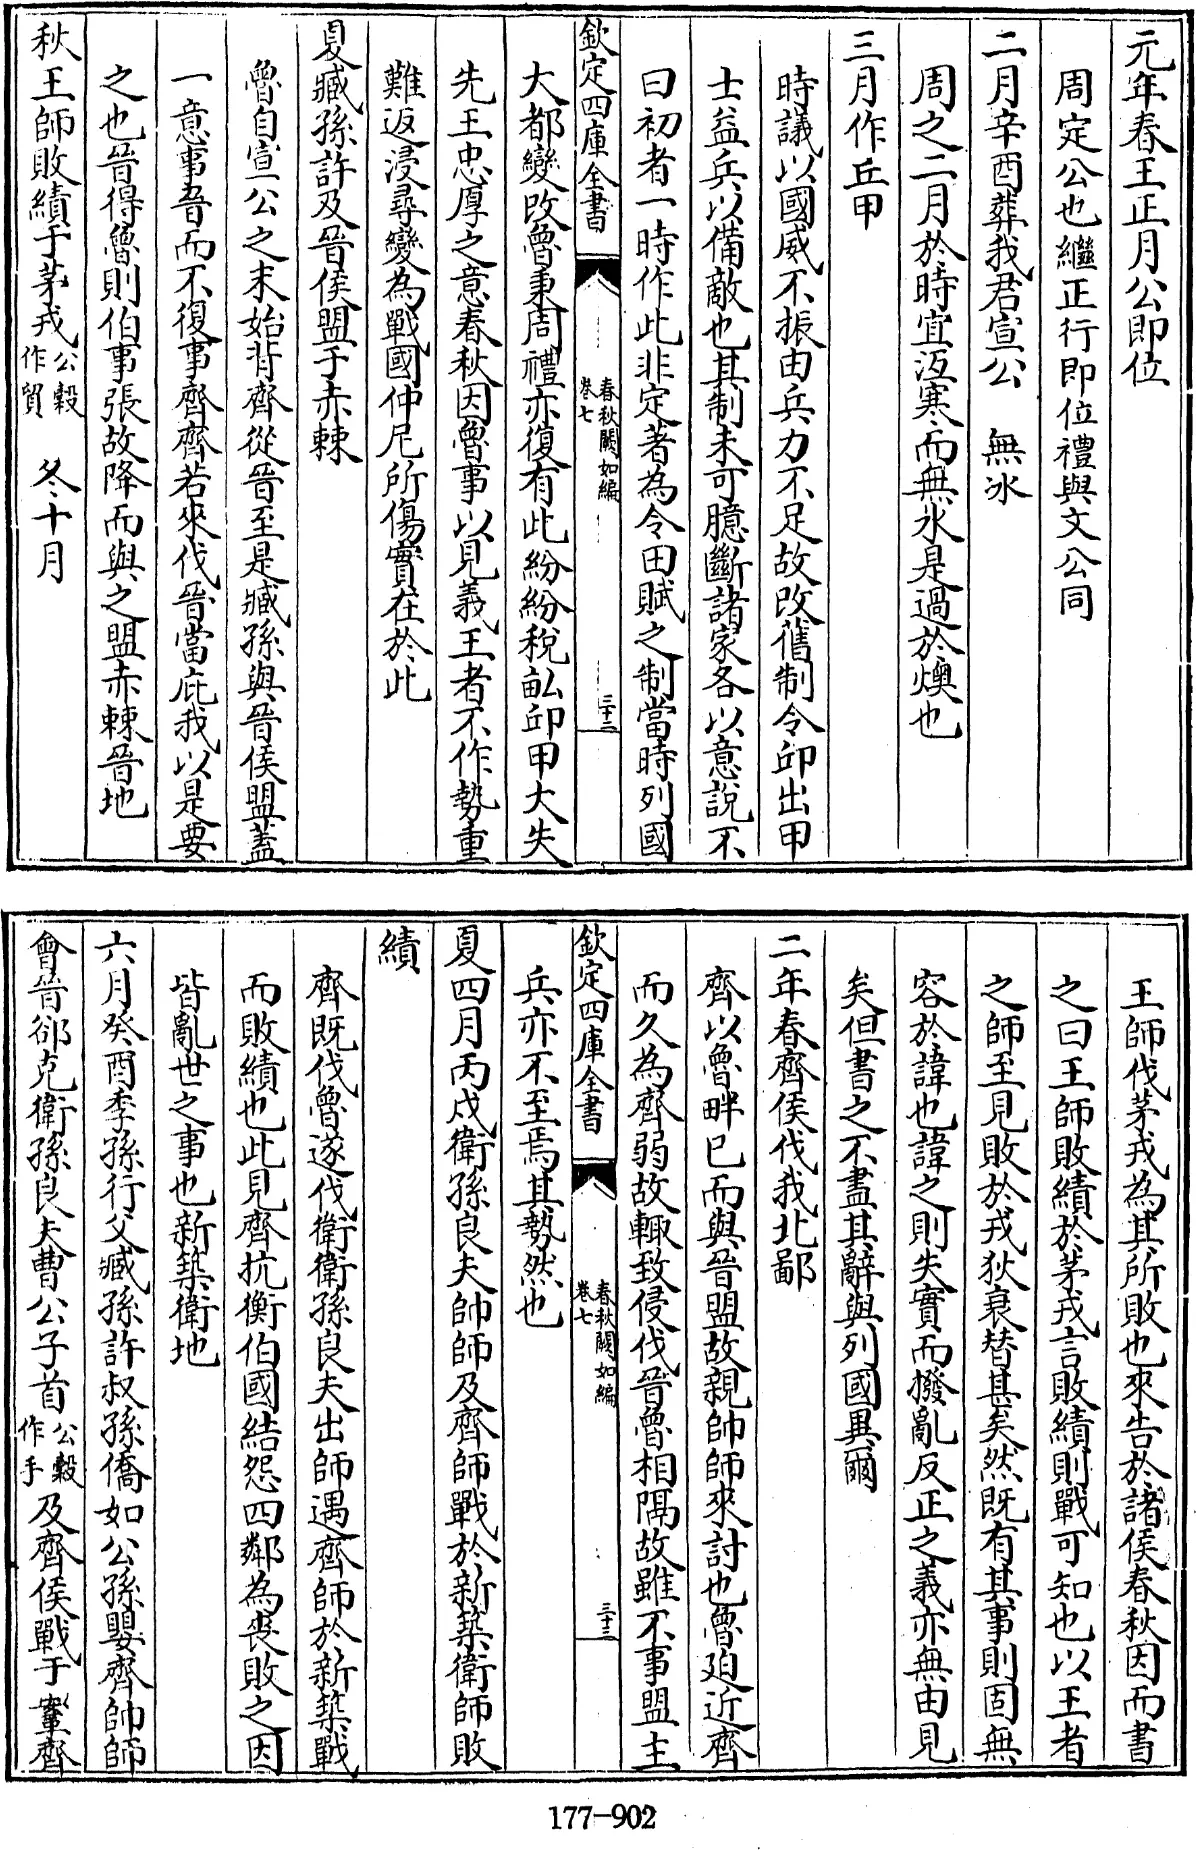 元年春王正月公即位
周定公也繼正行即位禮與文公同
二月辛酉葬我君宣公　無冰
周之二月於時宜沍寒而無冰是過於燠也
三月作丘甲
時議以國威不振由兵力不足故改舊制令邱出甲
士益兵以備敵也其制未可臆斷諸家各以意說不
曰初者一時作此非定著為令田賦之制當時列國
欽定四庫全書
春秋闕如編
卷七
三十二
大都變改魯秉周禮亦復有此紛紛稅畝邱甲大失
先王忠厚之意春秋因魯事以見義王者不作勢重
難返浸尋變為戰國仲尼所傷實在於此
夏臧孫許及晉侯盟于赤棘
魯自宣公之末始背齊從晉至是臧孫與晉侯盟蓋
一意事晉而不復事齊齊若來伐晉當庇我以是要
之也晉得魯則伯事張故降而與之盟赤棘晉地
秋王師敗績于茅戎公穀作貿　冬十月
王師伐茅戎為其所敗也來告於諸侯春秋因而書
之曰王師敗績於茅戎言敗績則戰可知也以王者
之師至見敗於戎狄衰替甚矣然既有其事則固無
容於諱也諱之則失實而撥亂反正之義亦無由見
矣但書之不盡其辭與列國異爾
二年春齊侯伐我北鄙
齊以魯畔已而與晉盟故親帥師來討也魯廹近齊
而久為齊弱故輒致侵伐晉魯相隔故雖不事盟主
欽定四庫全書
春秋闕如編
卷七
三十三
兵亦不至焉其勢然也
夏四月丙戌衛孫良夫帥師及齊師戰於新築衛師敗
績
齊既伐魯遂伐衛衛孫良夫出師遇齊師於新築戰
而敗績也此見齊抗衡伯國結怨四鄰為喪敗之因
皆亂世之事也新築衛地
六月癸酉季孫行父臧孫許叔孫僑如公孫嬰齊帥師
會晉郤克衛孫良夫曹公子首公穀作手及齊侯戰于鞌齊
177-902